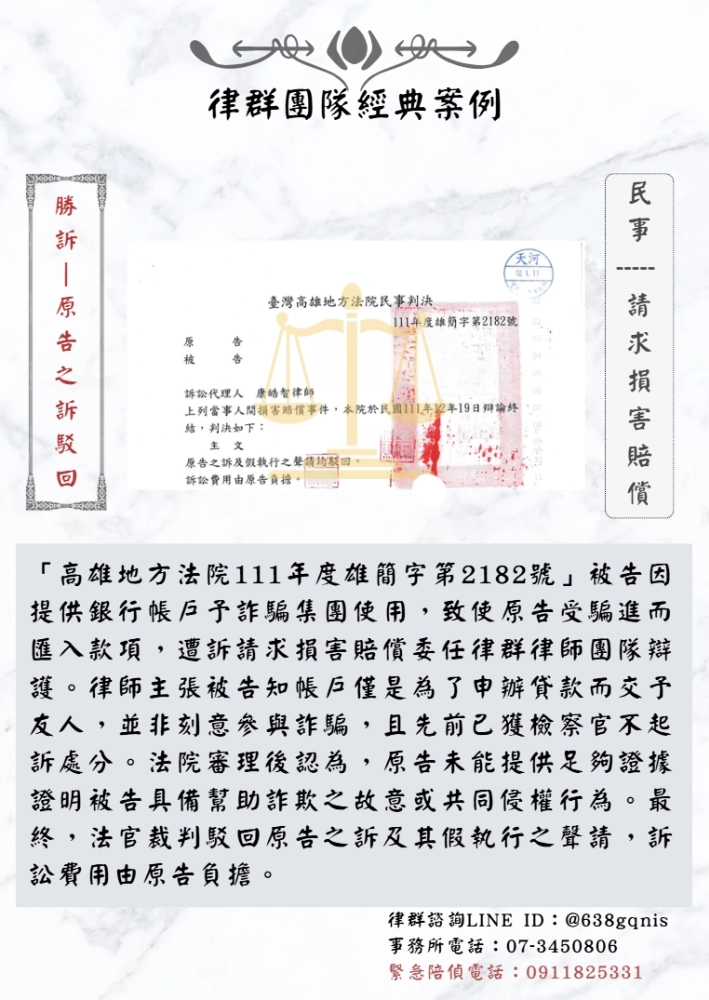 律群團隊經典案例
勝訴—原告之訴駁回
民事-----請求損害賠償
天河
臺灣高雄地方法院民事判決
111年度雄簡字第2182號
原 告
被 告
訴訟代理人 康皓智律師
上列當事人間損害賠償事件，本院於民國111年12月19日辯論終
結，判決如下：
主 文
原告之訴及假執行之聲請均駁回。
訴訟費用由原告負擔。
「高雄地方法院111年度雄簡字第2182號」被告因
提供銀行帳戶予詐騙集團使用，致使原告受騙進而
匯入款項，遭訴請求損害賠償委任律群律師團隊辯
護。律師主張被告知帳戶僅是為了申辦貸款而交予
友人，並非刻意參與詐騙，且先前已獲檢察官不起
訴處分。法院審理後認為，原告未能提供足夠證據
證明被告具備幫助詐欺之故意或共同侵權行為。最
終，法官裁判駁回原告之訴及其假執行之聲請，訴
訟費用由原告負擔。
律群諮詢LINE ID：@638gqnis
事務所電話：07-3450806
緊急陪偵電話：0911825331